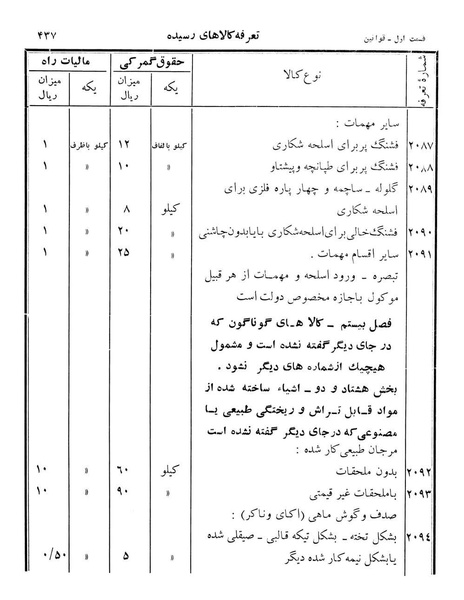 قسمت اول ـ قوانین تعرفه کالاهای رسیده ۴۳۷
شمارهٔ تعرفه نوع کالا حقوق گمرکی مالیات راه
یکه میزان ریال یکه میزان ریال
سایر مهمات :
۲۰۸۷ فشنگ پر برای اسلحه شکاری کیلو بالفاف ۱۲ کیلو باظرف ۱
۲۰۸۸ فشنگ پر برای طپانچه وپیشتاو » ۱۰ » ۱
۲۰۸۹ گلوله ـ ساچمه و چهار پاره فلزی برای
اسلحه شکاری کیلو ۸ » ۱
۲۰۹۰ فشنگ خالی برای اسلحه شکاری با یا بدون چاشنی » ۲۰ » ۱
۲۰۹۱ سایر اقسام مهمات . » ۲۵ » ۱
تبصره ـ ورود اسلحه و مهمات از هر قبیل
موکول باجازه مخصوص دولت است
فصل بیستم ـ کالا های گوناگون که
در جای دیگر گفته نشده است و مشمول
هیچیک ازشماره های دیگر نشود .
بخش هشتاد و دو ـ اشیاء ساخته شده از
مواد قابل تراش و ریختگی طبیعی یا
مصنوعی که در جای دیگر گفته نشده است
مرجان طبیعی کار شده :
۲۰۹۲ بدون ملحقات کیلو ۶۰ » ۱۰
۲۰۹۳ باملحقات غیر قیمتی » ۹۰ » ۱۰
صدف وگوش ماهی (اکای وناکر) :
۲۰۹٤ بشکل تخته ـ بشکل تیکه قالبی ـ صیقلی شده
یابشکل نیمه کار شده دیگر » ۵ » ۰/۵۰